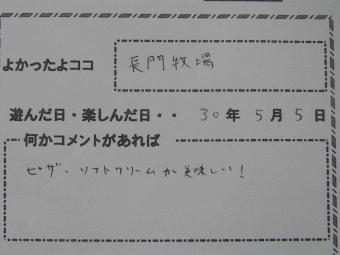 よかったよココ 長門牧場
遊んだ日・楽しんだ日・・ 30年 5月 5日
何かコメントがあれば
ピザ、ソフトクリームが美味しい!